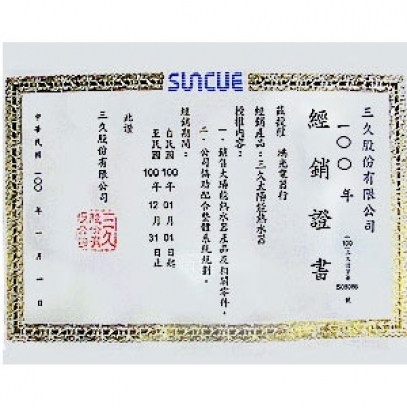 SUNCUE
三久股份有限公司
一〇〇年
經銷證書
茲授權 鴻光電器行
經銷產品：三久太陽能熱水器
授權內容：
一、銷售太陽能熱水器產品及相關零件。
二、公司協助配合整體系統規劃。
經銷期間：
自民國100年01月01日起
至民國100年12月31日止
此證
三久股份有限公司
中華民國一〇〇年一月一日